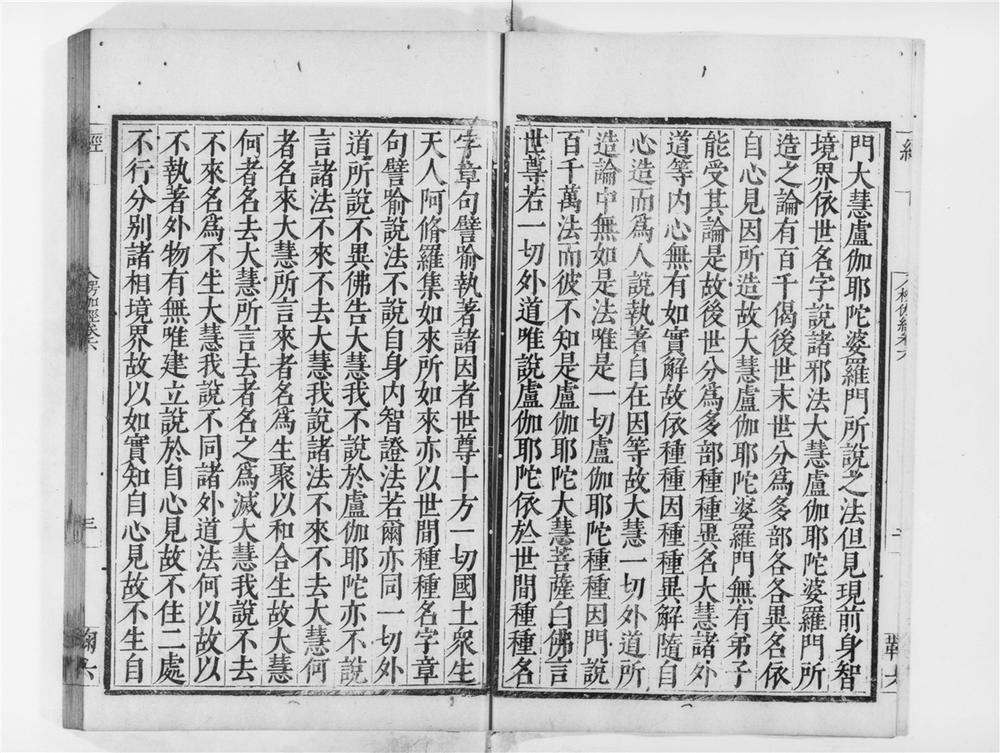 門大慧盧伽耶陀婆羅門所說之法但見現前身智
境界依世名字說諸邪法大慧盧伽耶陀婆羅門所
造之論有百千偈後世末世分爲多部各各異名依
自心見因所造故大慧盧伽耶陀婆羅門無有弟子
能受其論是故後世分爲多部種種異名大慧諸外
道等內心無有如實解故依種種因種種異解隨自
心造而爲人說執著自在因等故大慧一切外道所
造論中無如是法唯是一切盧伽耶陀種種因門說
百千萬法而彼不知是盧伽耶陀大慧菩薩白佛言
世尊若一切外道唯說盧伽耶陀依於世間種種名
字章句譬喻執著諸因者世尊十方一切國土衆生
天人阿脩羅集如來所如來亦以世間種種名字章
句譬喻說法不說自身內智證法若爾亦同一切外
道所說不異佛告大慧我不說於盧伽耶陀亦不說
言諸法不來不去大慧我說諸法不來不去大慧何
者名來大慧所言來者名爲生聚以和合生故大慧
何者名去大慧所言去者名之爲滅大慧我說不去
不來名爲不生大慧我說不同諸外道法何以故以
不執著外物有無唯建立說於自心見故不住二處
不行分別諸相境界故以如實知自心見故不生自
經
入楞伽經卷六
三